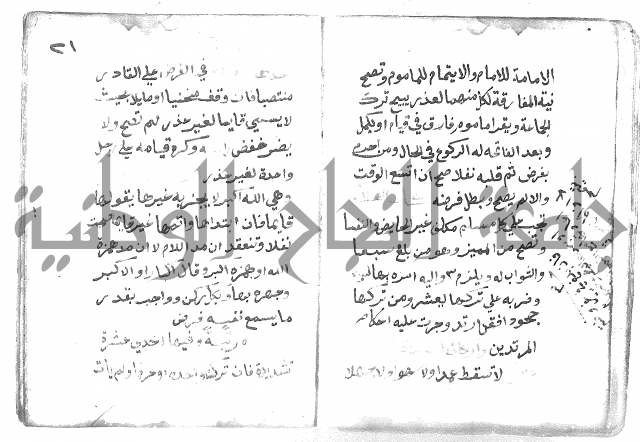 الامامة للامام والايتمام للماموم وتصح
نية المفارقة لكل منهما لعذر يبيح ترك
الجماعة ويقرا ماموم فارق في قيام او يكمل
وبعد الفاتحة له الركوع في الحال ومن احرم
بفرض ثم قلبه نفلا صح ان اتسع الوقت
والا لم يصح وبطل فرضه
تجب على كل مسلم مكلف غير الحايض والنفسا
وتصح من المميز وهو من بلغ سبعا
والثواب له ويلزم وليه امره بها
وضربه على تركها لعشر ومن تركها
جحودا فقد ارتد وجرت عليه احكام
المرتدين
لا تسقط عمدا ولا سهوا ولا جهلا
٢١
في الفرض على القادر
منتصبا فان وقف منحنيا او مايلا بحيث
لا يسمى قايما لغير عذر لم تصح ولا
يضر خفض وكره قيامه على رجل
واحدة لغير عذر
وهي الله اكبر لا يجزيه غيرها يقولها
قايما فان ابتداها او اتمها غير قايم صحت
نفلا وتنعقد ان مد اللام لا ان مد همزة
الله او همزة اكبر او قال اكبار او الاكبر
وجهره بها وبكل ركن وواجب بقدر
ما يسمع نفسه فرض
وفيها احدى عشرة
تشديدة فان ترك واحدة او حرفا ولم يات